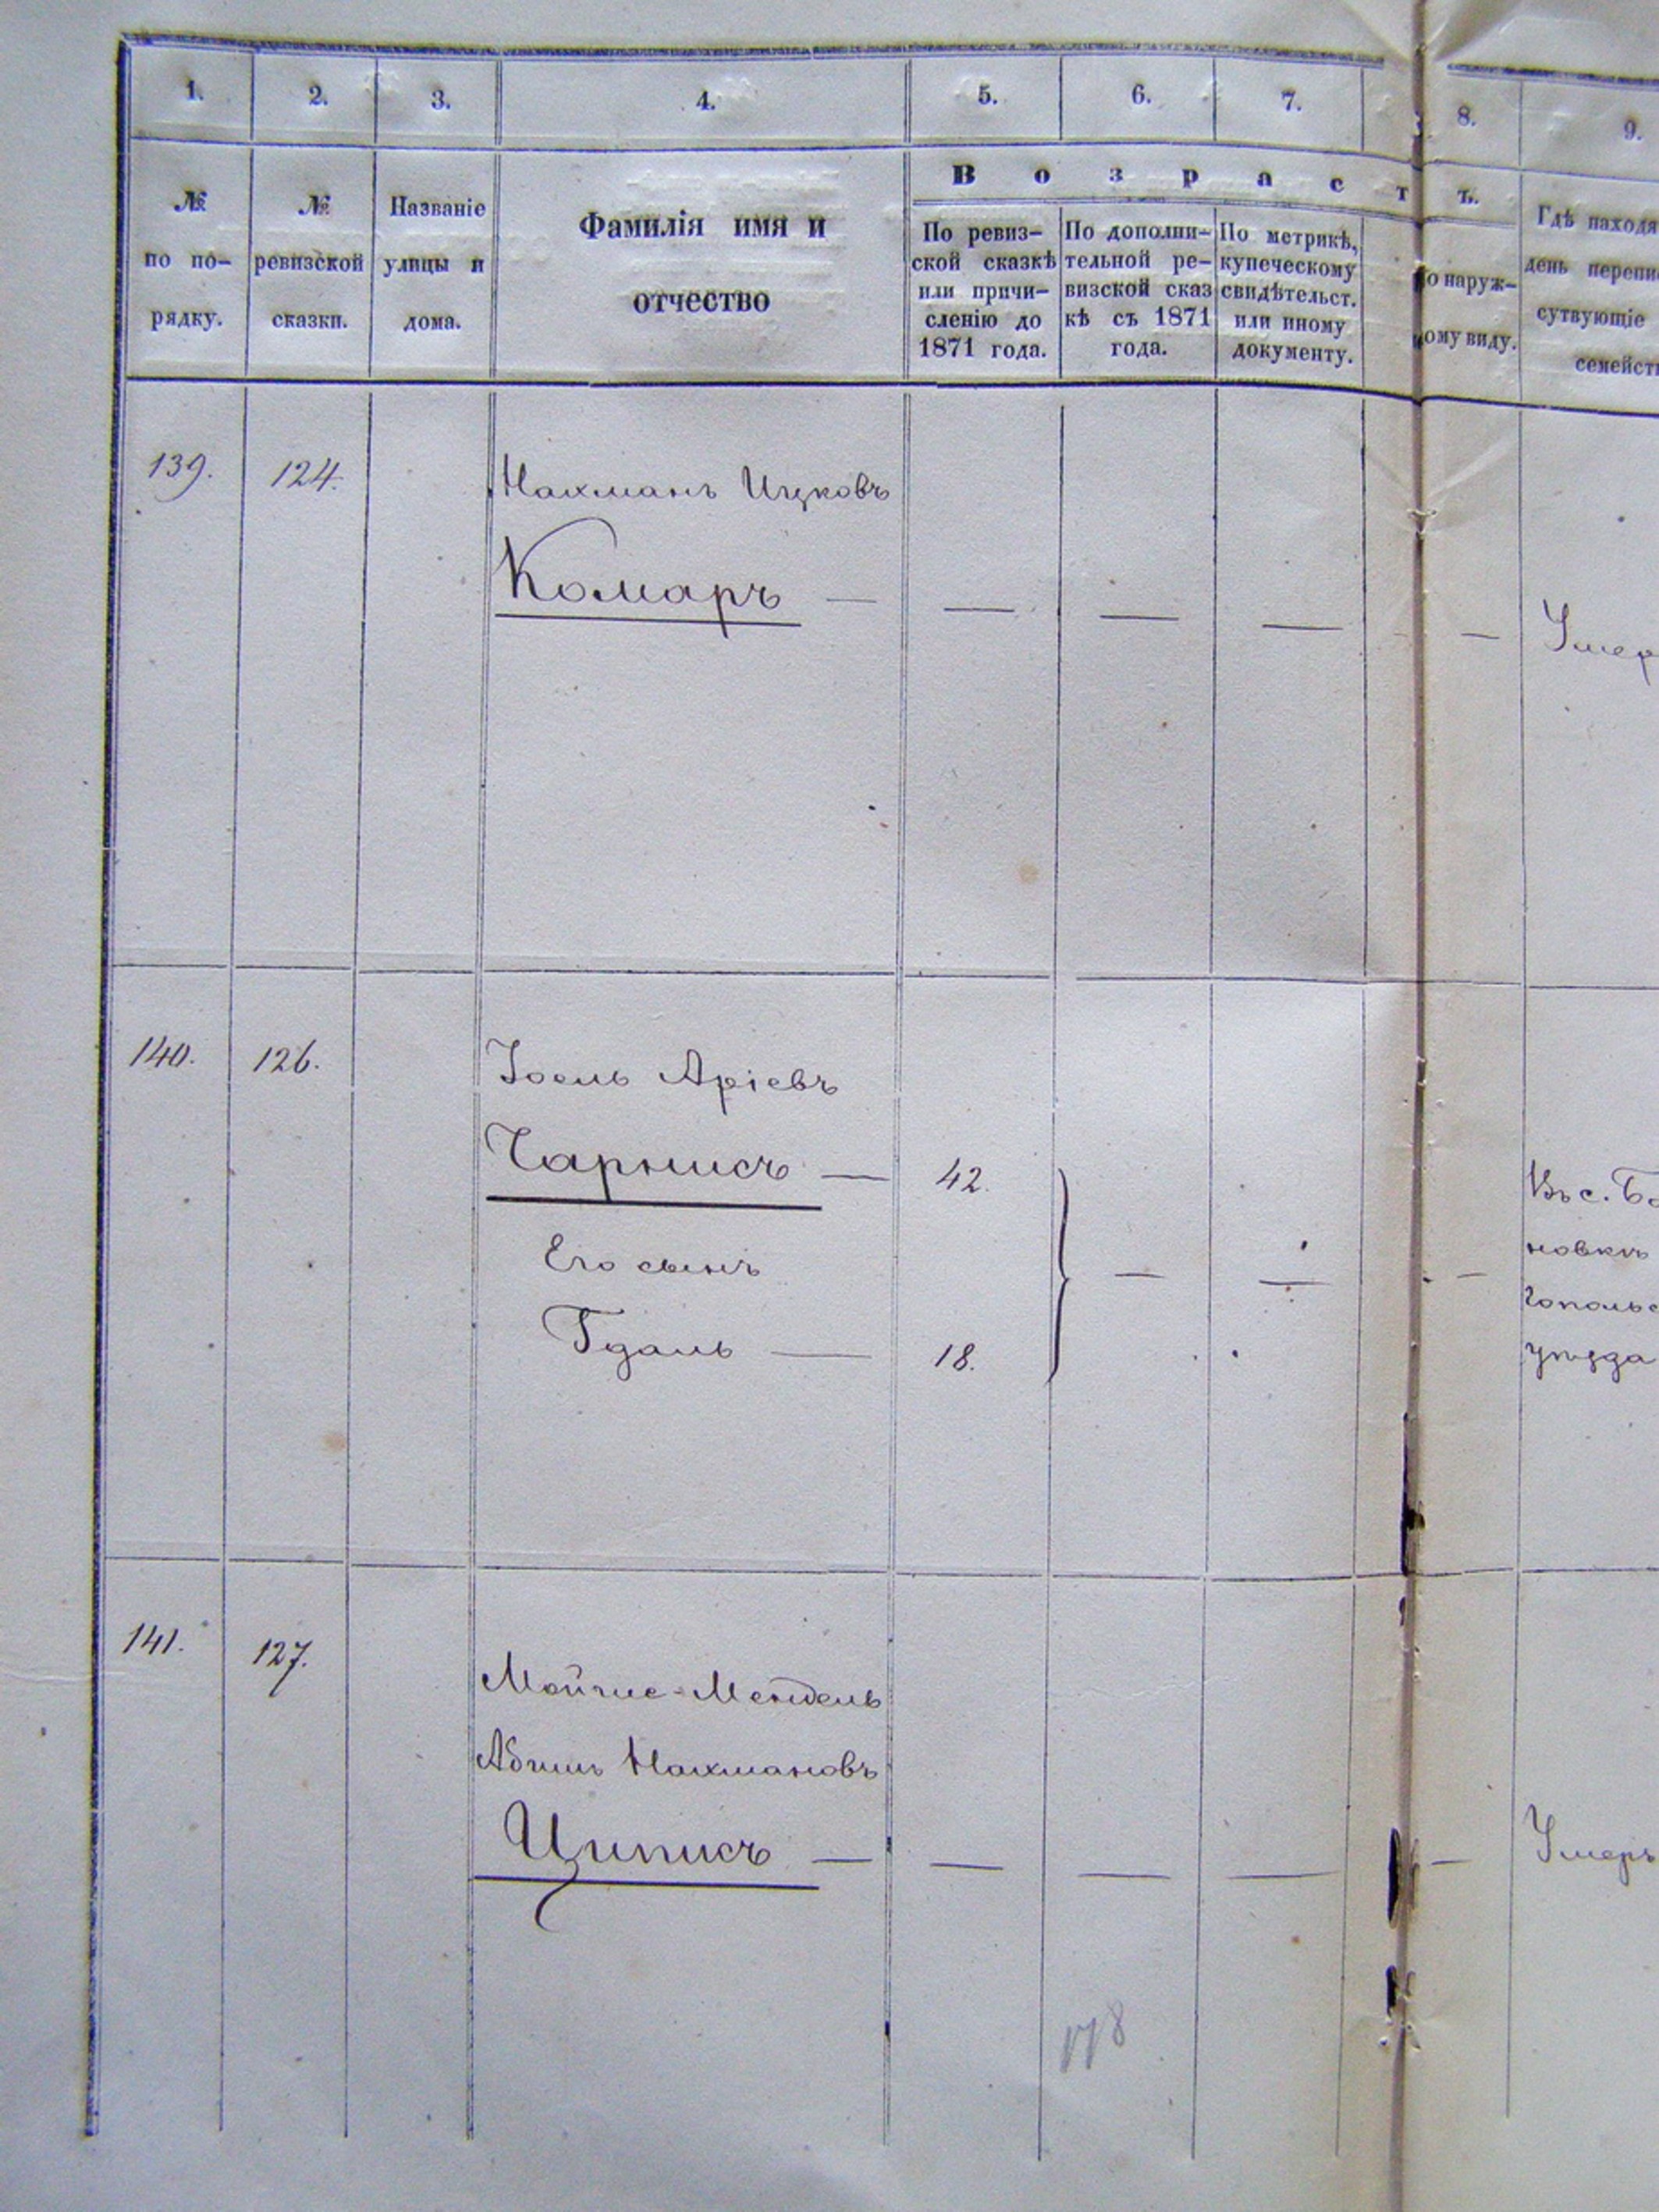 1. 2. 3. 4. 5. 6. 7. 8. 9.
В о з р а с т ъ.
№ по по- рядку.
№ ревизской сказки.
Названіе улицы и дома.
Фамилія имя и
отчество
По ревиз-
ской сказкѣ
или причи-
сленію до
1871 года.
По дополни-
тельной ре-
визской сказ
кѣ съ 1871
года.
По метрикѣ,
купеческому
свидѣтельст.
или иному
документу.
о наруж-
ому виду.
Гдѣ находя
день перепи
сутвующіе
семейст
139. 124. Нахманъ Ицковъ
Комаръ — — — — — Умер
140. 126. Іоель Аріевъ
Чарнисъ — 42. Въ с. Ба
Его сынъ — — — новкѣ
Гдаль — 18. уѣзда
141. 127. Мойше-Мендель
Абишъ Нахмановъ
Циписъ — — — — — Умеръ
178